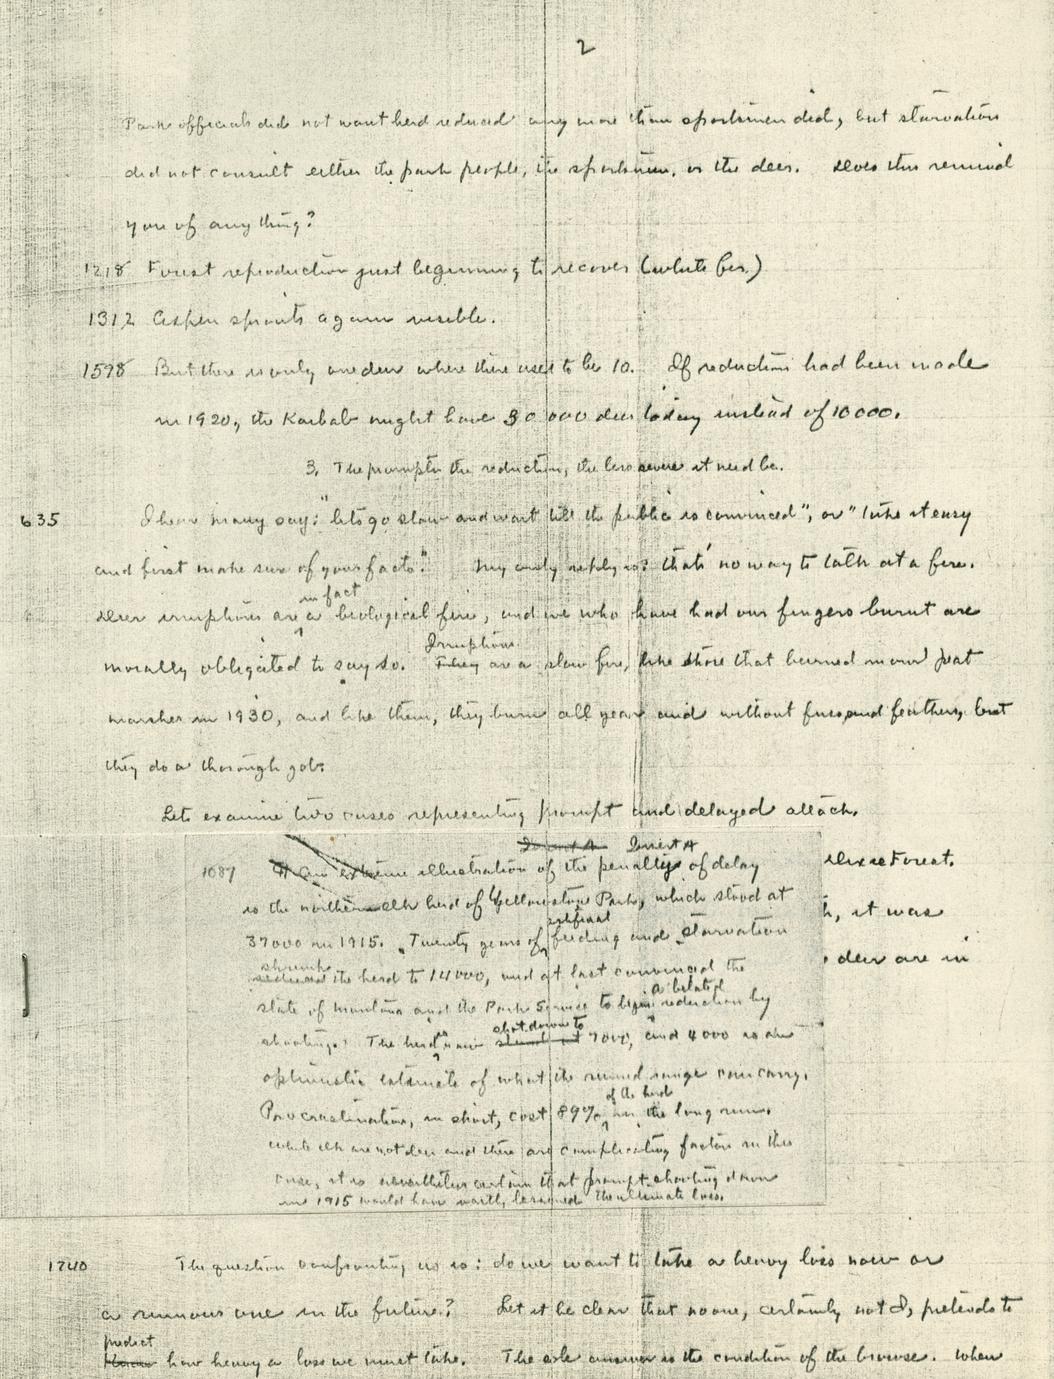 2
Park officials did not want herd reduced any more than sportsmen did, but starvation
did not consult either the park people, the sportsmen, or the deer. Does this remind
you of anything?
1218 Forest reproduction just beginning to recover (white fir.)
1312 Aspen sprouts again visible.
1598 But there is only one deer where there used to be 10. If reduction had been made
in 1920, the Kaibab might have 30 000 deer today instead of 10 000.
3. The prompter the reduction, the less severe it need be.
635 I hear many say: "lets go slow and wait till the public is convinced", or "take it easy
and first make sure of your facts." My only reply is: that's no way to talk at a fire.
in fact
Deer irruptions are a biological fire, and we who have had our fingers burnt are
Irruptions
morally obligated to say so. They are a slow fire, like those that burned our peat
marshes in 1930, and like them, they burn all year and without fuss and feathers, but
they do a thorough job.
Lets examine two cases representing prompt and delayed attack.
Insert A Insert A
1087 An extreme illustration of the penalty of delay
is the northern elk herd of Yellowstone Park, which stood at
artificial
37000 in 1915. Twenty years of feeding and starvation
shrunk
reduced the herd to 14000, and at last convinced the
a belated
state of Montana and the Park Service to begin reduction by
shot down to
shooting. The herd is now 7000, and 4000 is an
optimistic estimate of what the ruined range can carry.
of the herd
Procrastination, in short, cost 89% in the long run.
While elk are not deer and there are complicating factors in this
case, it is nevertheless certain that prompt shooting down
in 1915 would have vastly lessened the ultimate loss.
Forest.
, it was
deer are in
1740 The question confronting us is: do we want to take a heavy loss now or
a ruinous one in the future? Let it be clear that no one, certainly not I, pretends to
predict
how heavy a loss we must take. The sole answer is the condition of the browse. When